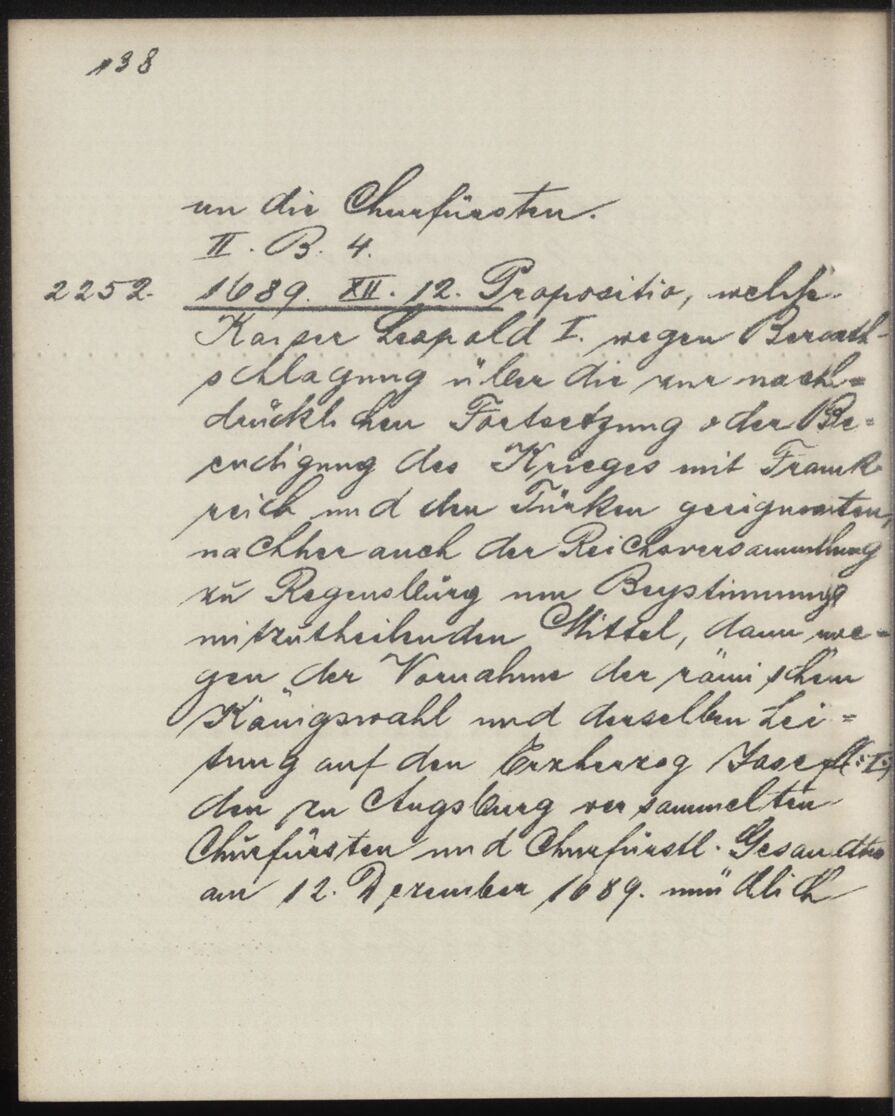 138
an die Churfürsten.
II. B. 4.
2252. 1689. XII. 12. Propositio, welche
Kaiser Leopold I. wegen Berath-
schlagung über die zur nach=
drücklichen Fortsetzung oder Be=
endigung des Krieges mit Frank
reich und den Türken geeigneten,
nachher auch der Reichsversammlung
zu Regensburg um Beystimmung
mitzutheilenden Mittel, dann we=
gen der Vornahme der römischen
Königswahl und derselben Lei=
tung auf den Erzherzog Josef (:I:)
den zu Augsburg versammelten
Churfürsten und Churfürstl. Gesandten
am 12. Dezember 1689. mündlich